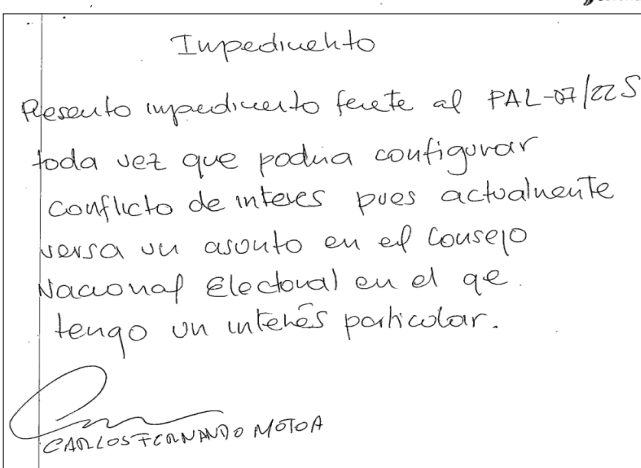 Impedimento
Presento impedimento frente al PAL-07/22S
toda vez que podria configurar
conflicto de interes pues actualmente
versa un asunto en el Consejo
Nacional Electoral en el qe
tengo un interés particular.
CARLOS FERNANDO MOTOA